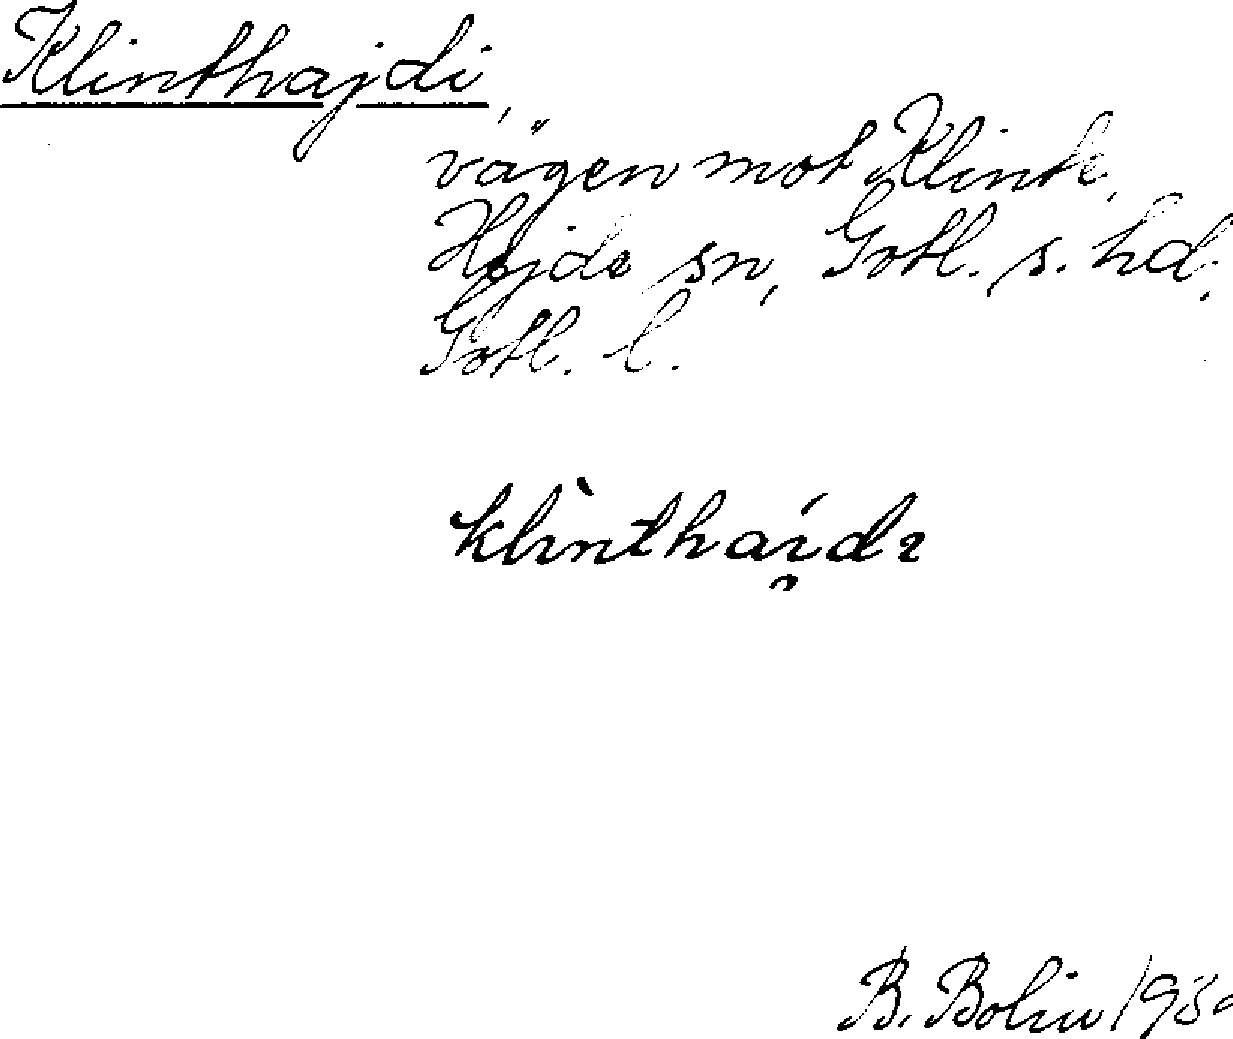 Klinthajdi,
vägen mot Klinte,
Hejde sn, Gotl. s. hd,
Gotl. l.
klìnthai̯dı
B. Bolin